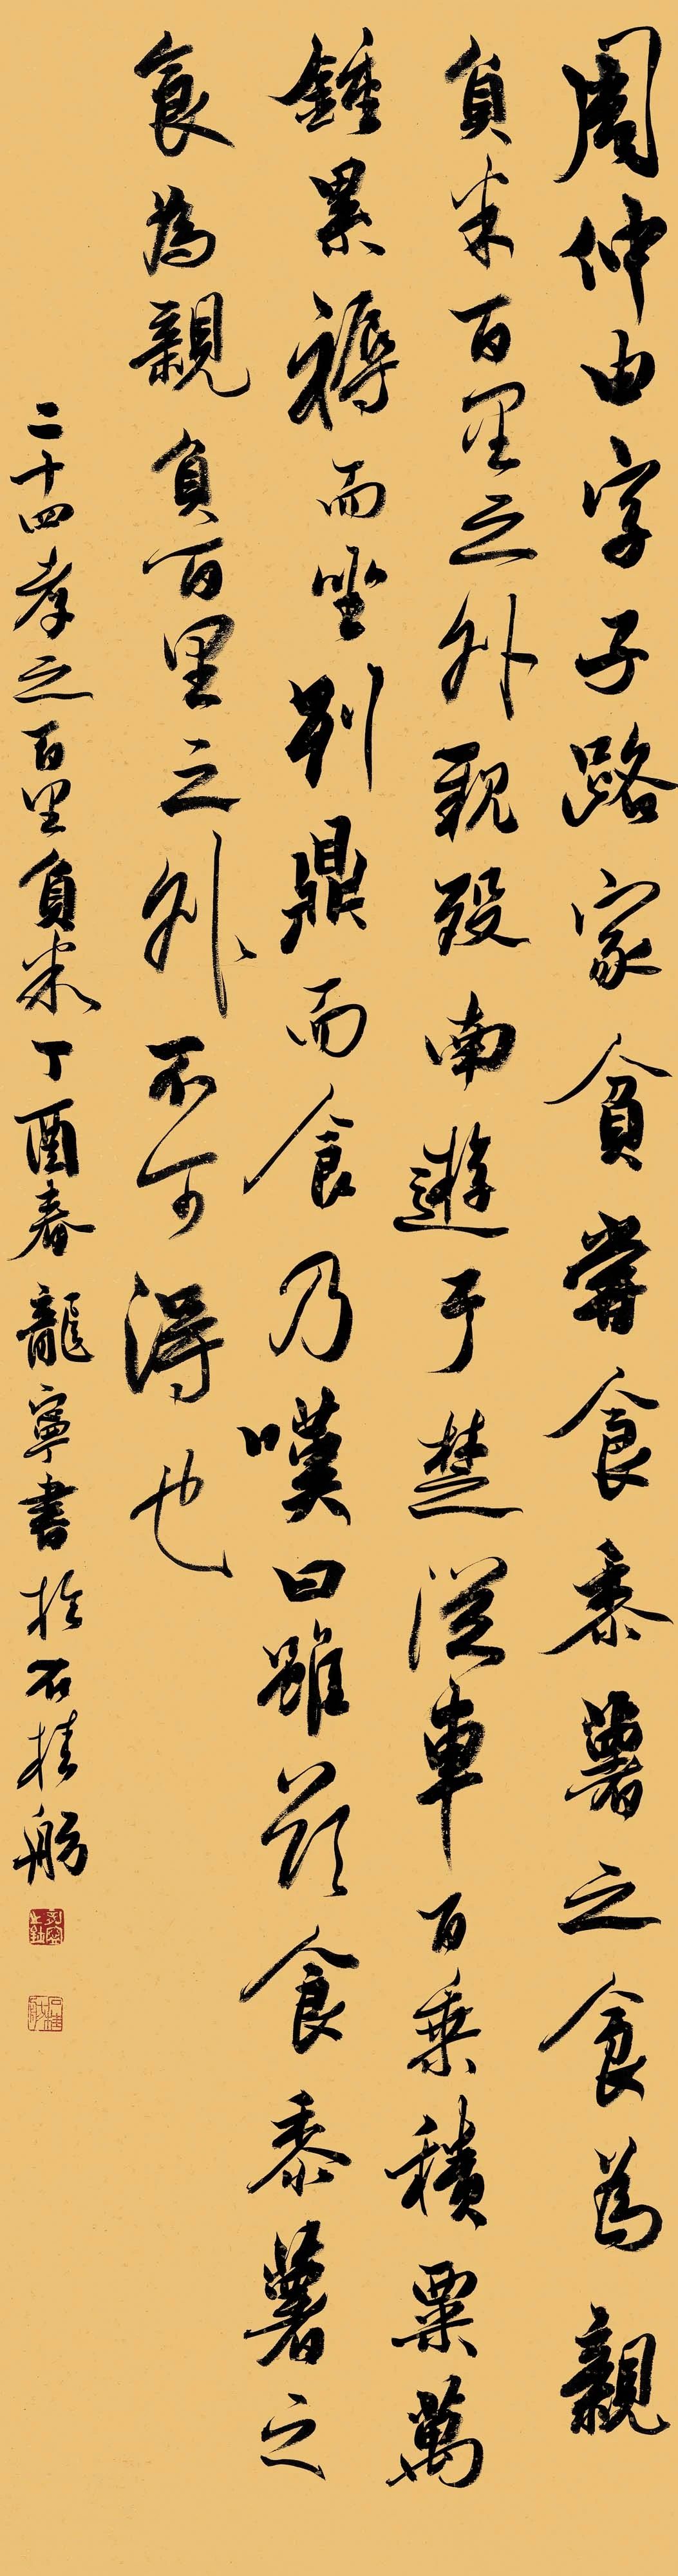 周仲由字子路家貧嘗食黍薯之食為親
負米百里之外親歿南遊于楚從車百乘積粟萬
鍾累褥而坐列鼎而食乃嘆曰雖欲食黍薯之
食為親負百里之外不可得也
二十四孝之百里負米丁酉春龍寧書於石桂舫